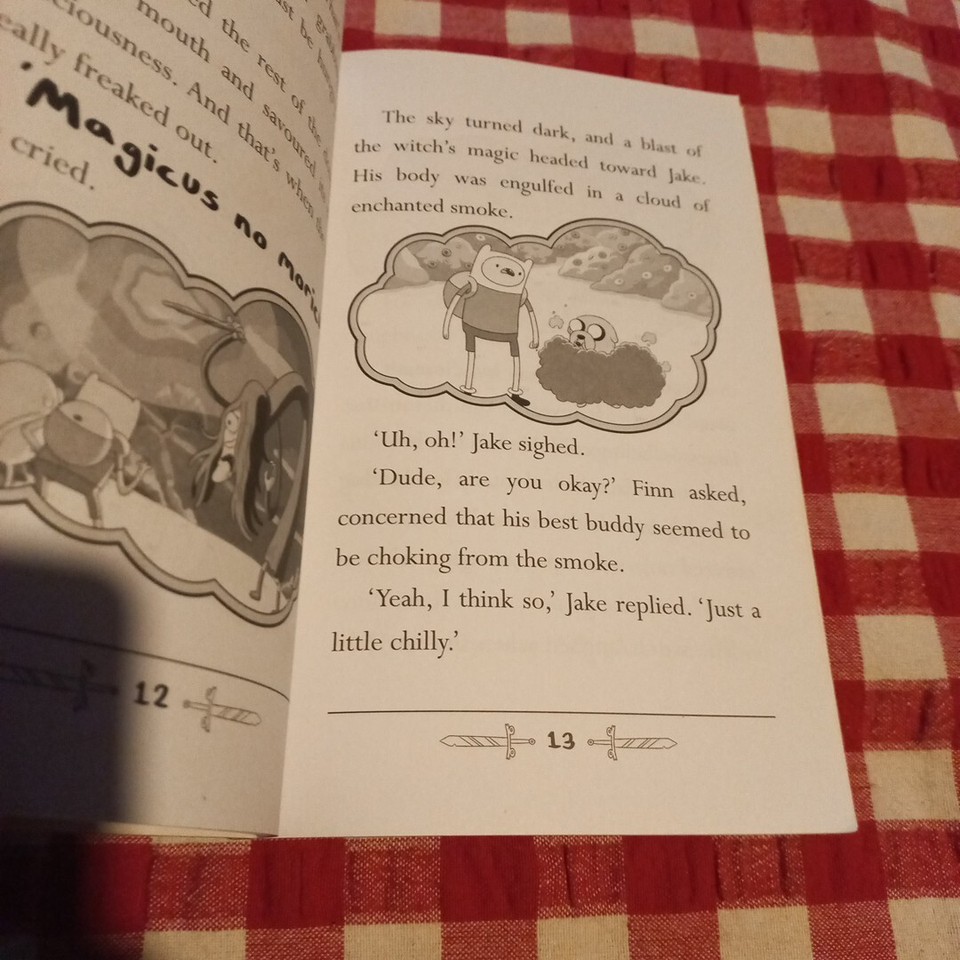 ed the rest of the
mouth and savoured
ciousness. And that's when
eally freaked out.
'Magicus no
cried.
12
The sky turned dark, and a blast of
the witch's magic headed toward Jake.
His body was engulfed in a cloud of
enchanted smoke.
'Uh, oh!' Jake sighed.
'Dude, are you okay?' Finn asked,
concerned that his best buddy seemed to
be choking from the smoke.
'Yeah, I think so,' Jake replied. 'Just a
little chilly.'
13